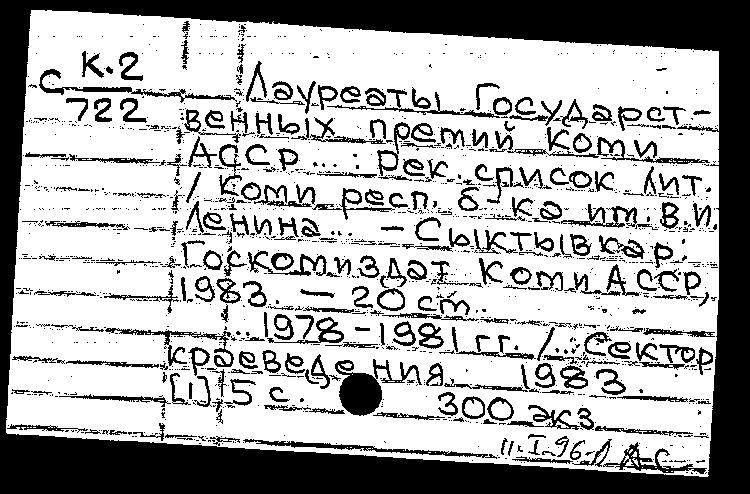 С К.2
722
Лауреаты Государст-
венных премий Коми
АССР... : Рек. список лит.
/ Коми респ. б-ка им. В.И.
Ленина... – Сыктывкар:
Госкомиздат Коми АССР,
1983. – 20 см.
...1978-1981 гг. /... Сектор
краеведения. 1983.
[1] 5 с. 300 экз.
11.I-96 А-С